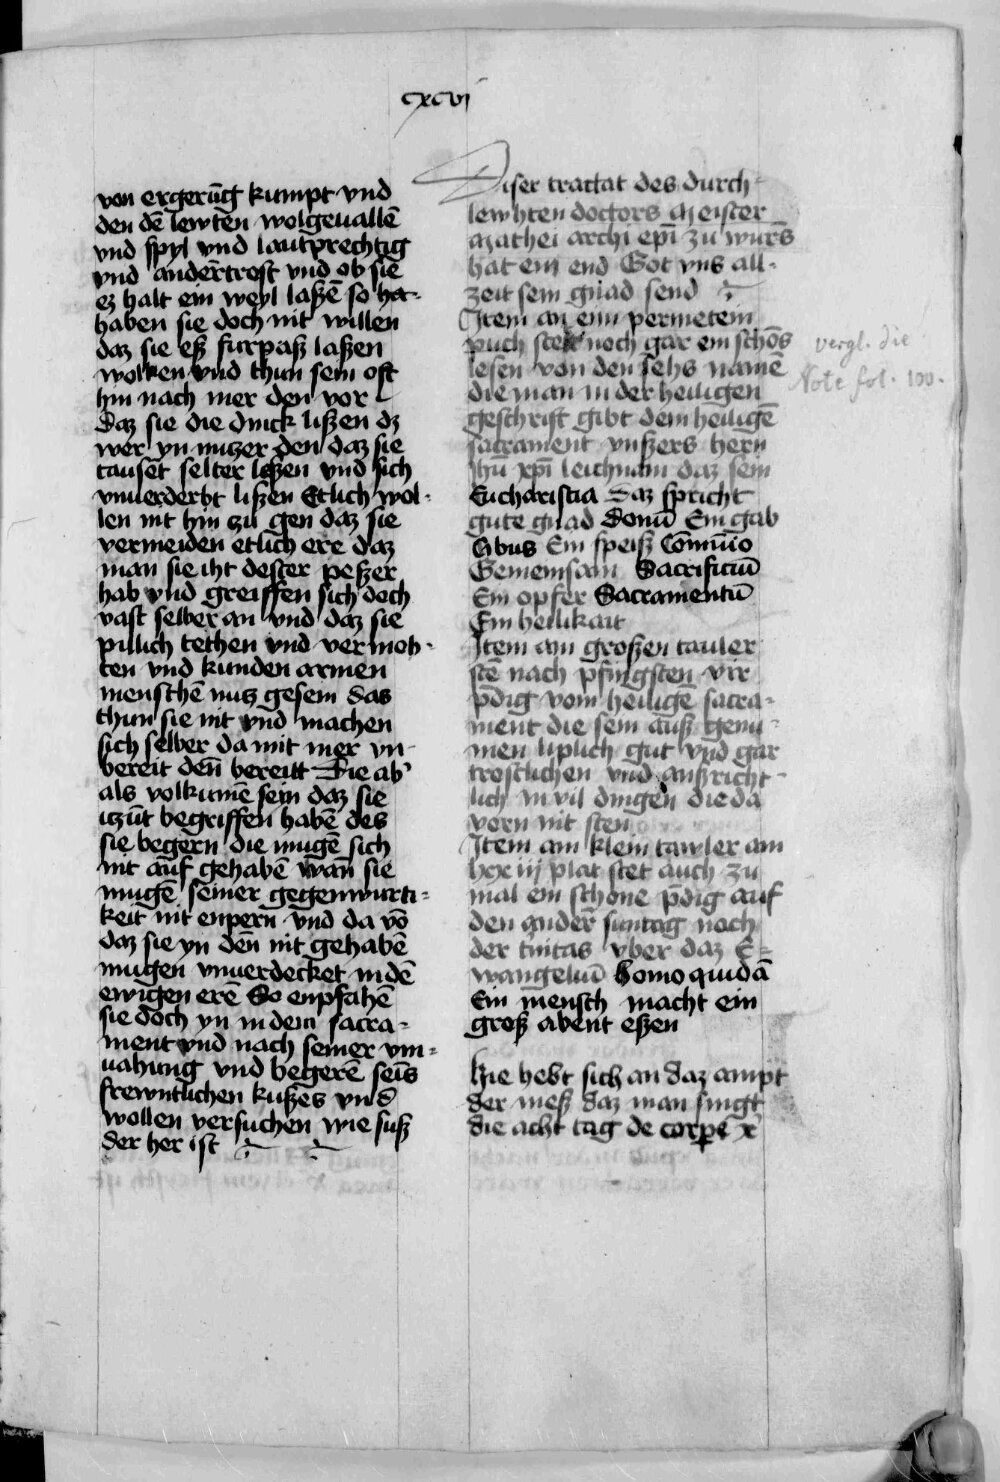 cxcvi
von ergerūg kumpt vnd
den dē lewten wolgeuallē
vnd spyl vnd lautprechtig
vnd andertrost vnd ob sie
ez halt ein weyl laßē so ha-
haben sie doch nit willen
daz sie eß furpaß laßen
wolken vnd thun sein oft
hin nach mer den vor
daz sie die dinck lißen dz
wer yn nutzer den daz sie
tausēt selter leßen vnd sich
vnuerderbt lißen Etlich wol-
len nit hin zu gen daz sie
vermeiden etlich ere daz
man sie iht dester peßer
hab vnd greiffen sich doch
vast selber an vnd daz sie
pillich tethen vnd vermoh-
ten vnd kunden armen
menschē nutz gesein das
thun sie nit vnd machen
sich selber da mit mer vn-
bereit deñ bereitt Die ab'
als volkumē sein daz sie
iczūt begriffen habē des
sie begern die mugē sich
nit auf gehabē wañ sie
mugē seiner gegenwurti-
keit nit enpern vnd da vō
daz sie yn deñ nit gehabē
mugen vnuerdecket in dē
ewigen erē So enpfahē
sie doch yn in dem sacra-
ment vnd nach seiner vm-
uahung vnd begerē seīs
frewntlichen kußes vnd
wollen versuchen wie suß
der her ist
Diser tractat des durch
lewhten doctors Meister
Mathei archi epī zū wurs
hat ein end Got vns all-
zeit sein gnad send
Item an eim permetein
puch stet noch gar ein schōs
lesen von den sehs namē
die man in der heiligen
geschrift gibt dem heiligē
sacrament vnßers hern
Ihū xpī leichnam daz sein
Eucharistia Daz spricht
gute gnad Donū Ein gab
Cibus Ein speiß Cōmūio
Gemeinsam Sacrificiū
Ein opfer Sacramentū
Ein heilikait
Item am großen tauler
stē nach pfingsten vir
pdig vom heiligē sacra-
ment die sein auß genu-
men liplich gut vnd gar
trostlichen vnd außricht-
lich in vil dingen die da
vorn nit sten
Item am klein tawler am
lxx iij plat stet auch zu
mal ein schone pdig auf
den ander suntag noch
der tnitas vber daz E-
wangeliū Homo quidā
Ein mensch macht ein
groß abent eßen
Hie hebt sich an daz ampt
der meß daz man singt
die acht tag de corpe x'
vergl. die
Note fol. 100.